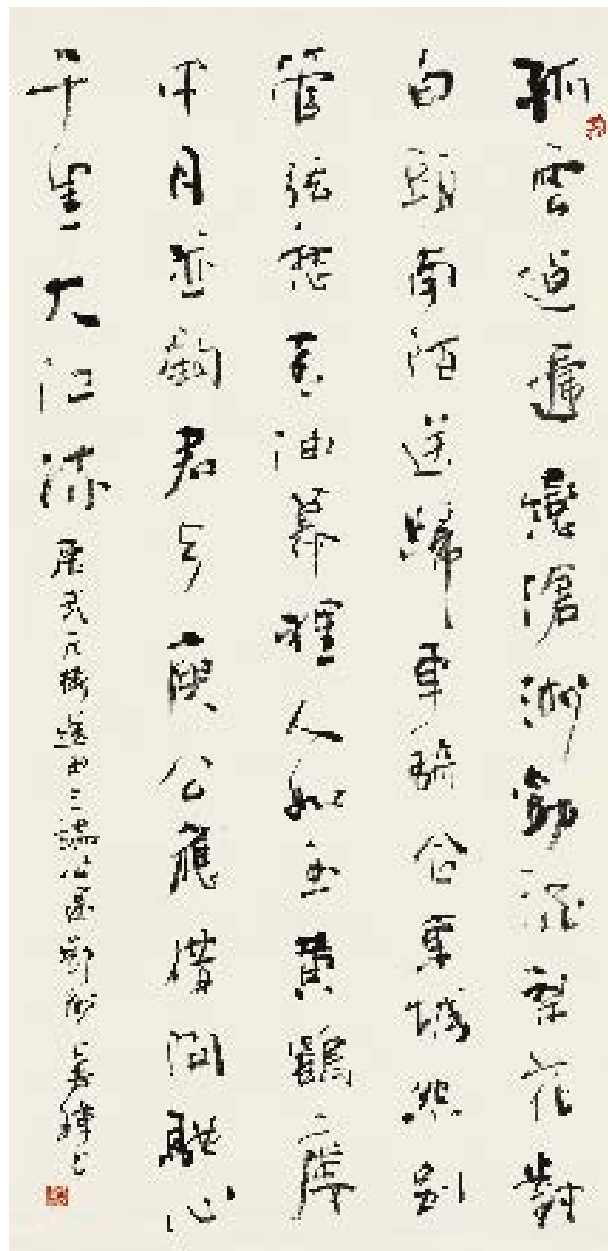 孤雲迢遞戀滄洲勸酒梨花對
白頭南陌送歸車騎合東城怨別
管弦愁青油幕裡人如玉黃鶴樓
中月並鉤君去庾公應借問馳心
千里大江流 唐武元衡送田三端公還鄂州